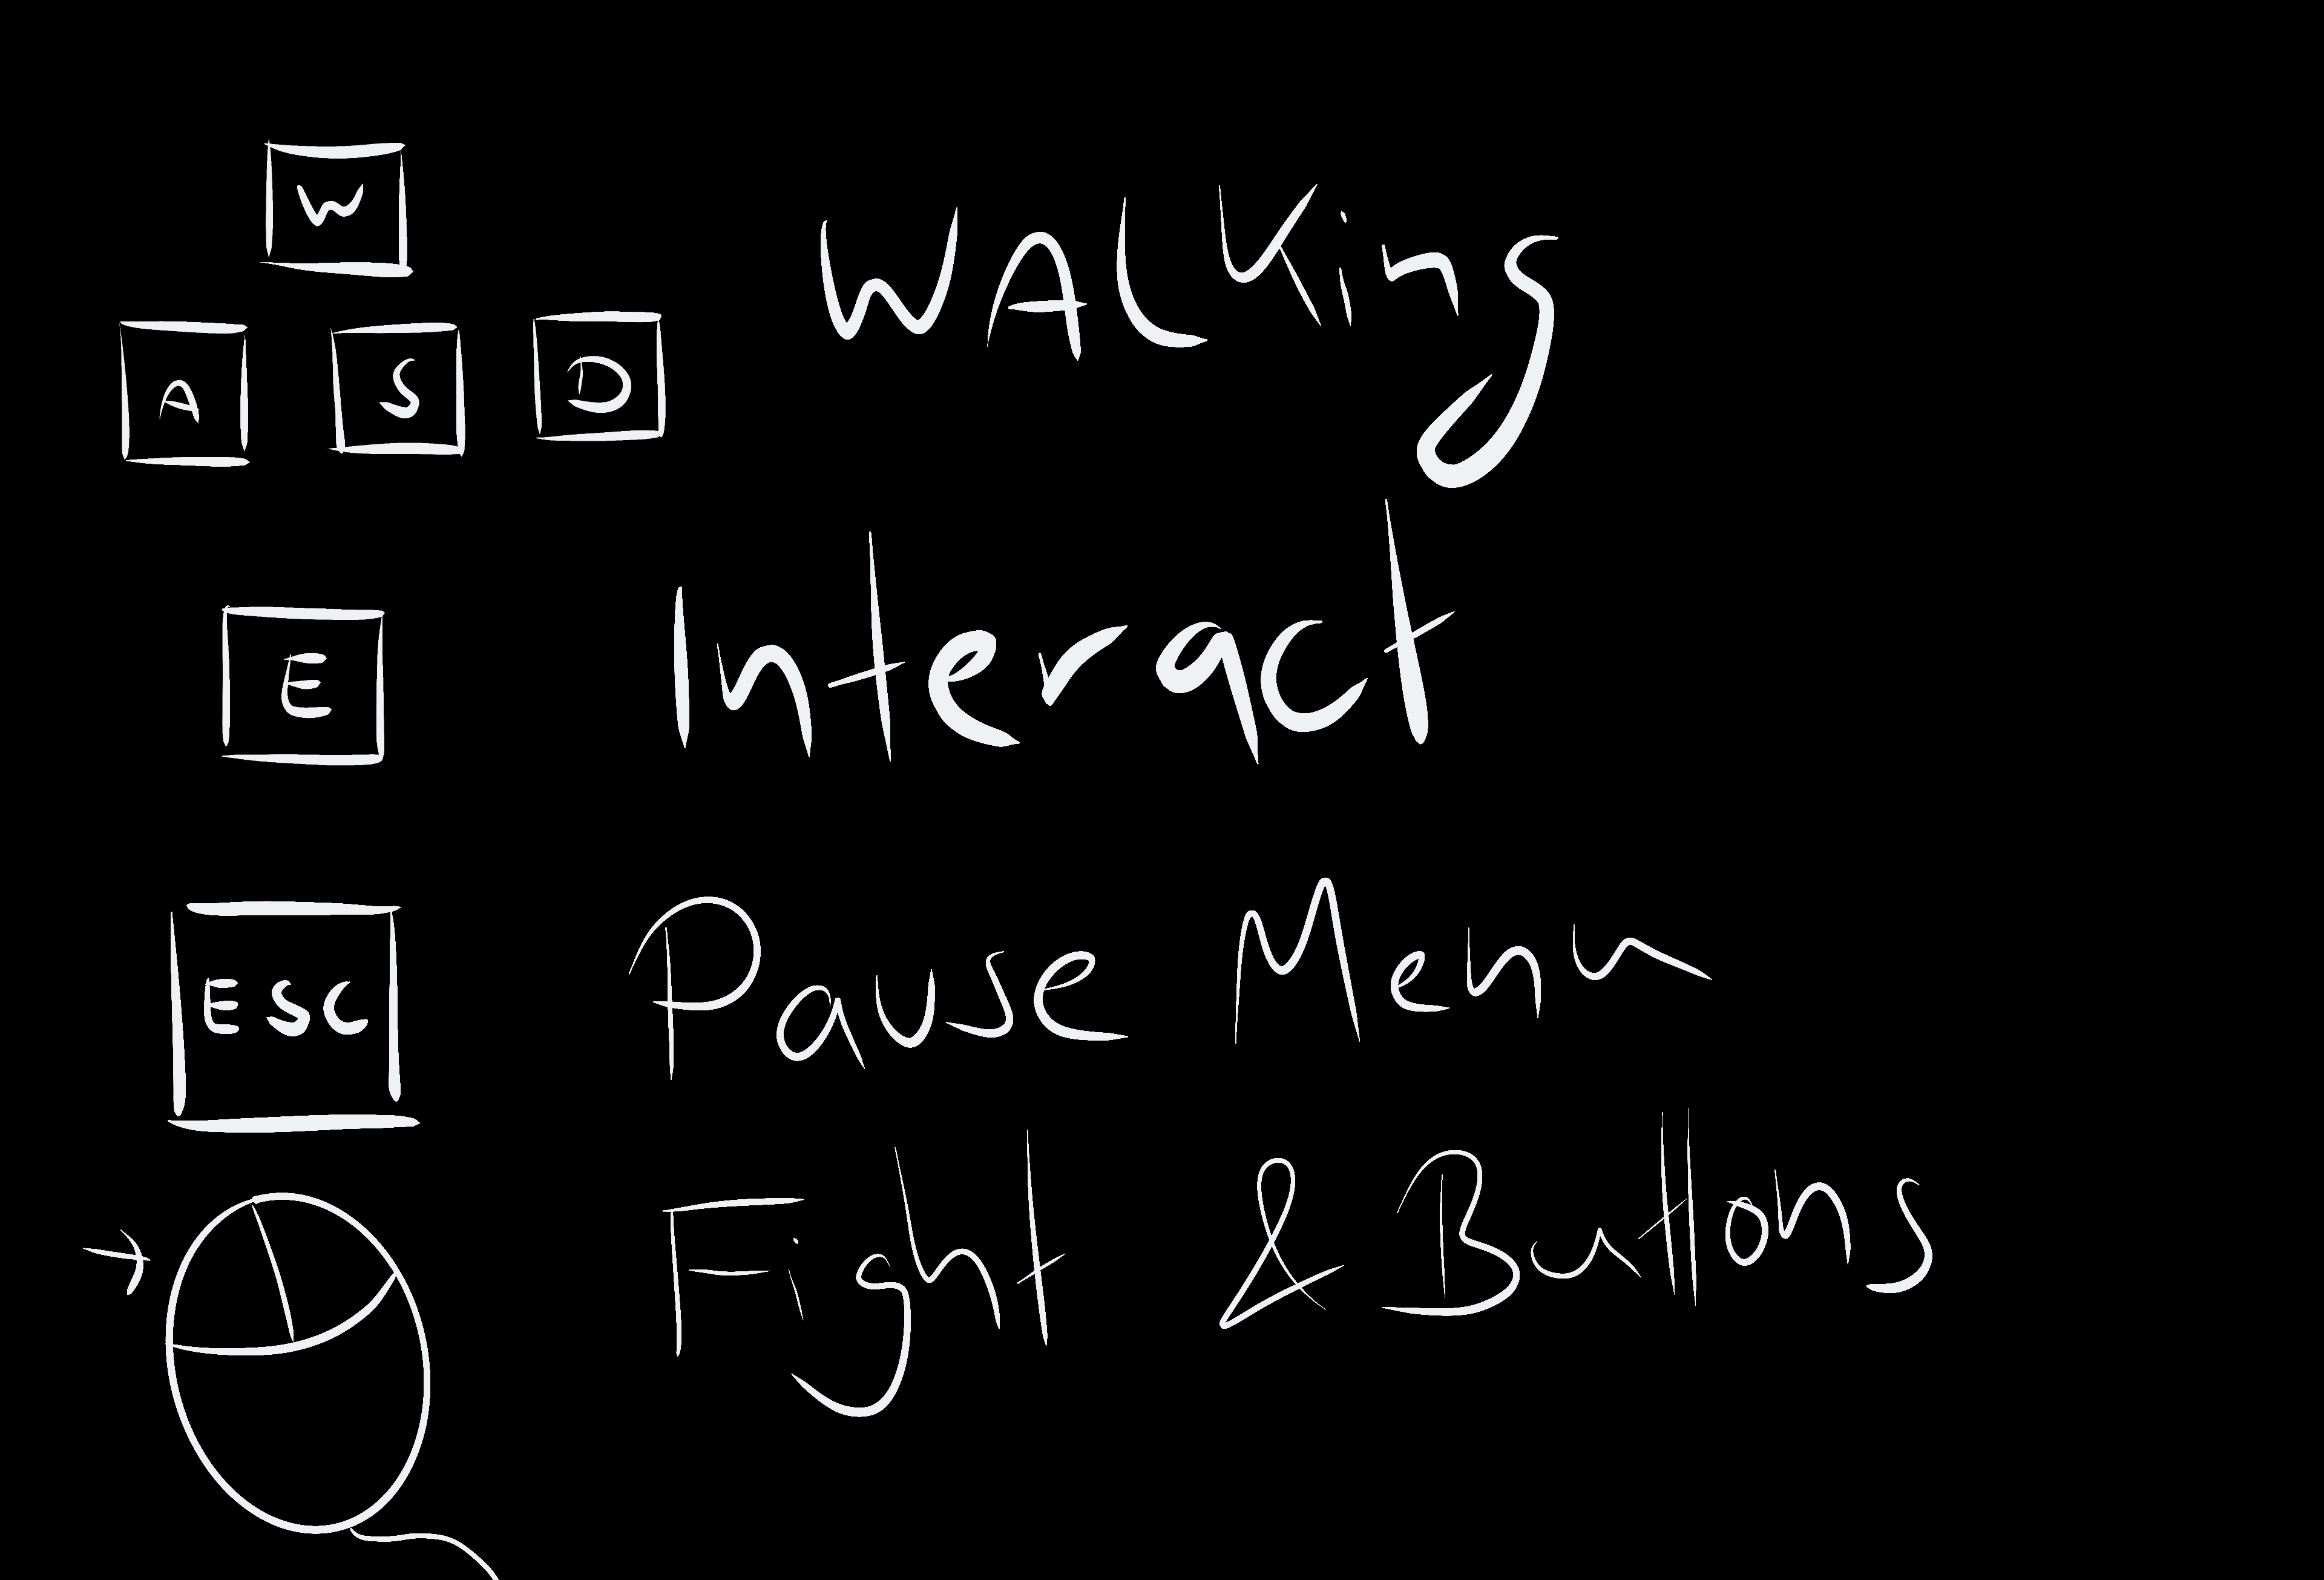 W
A S D WALKing
E Interact
ESC Pause Menu
Fight & Buttons